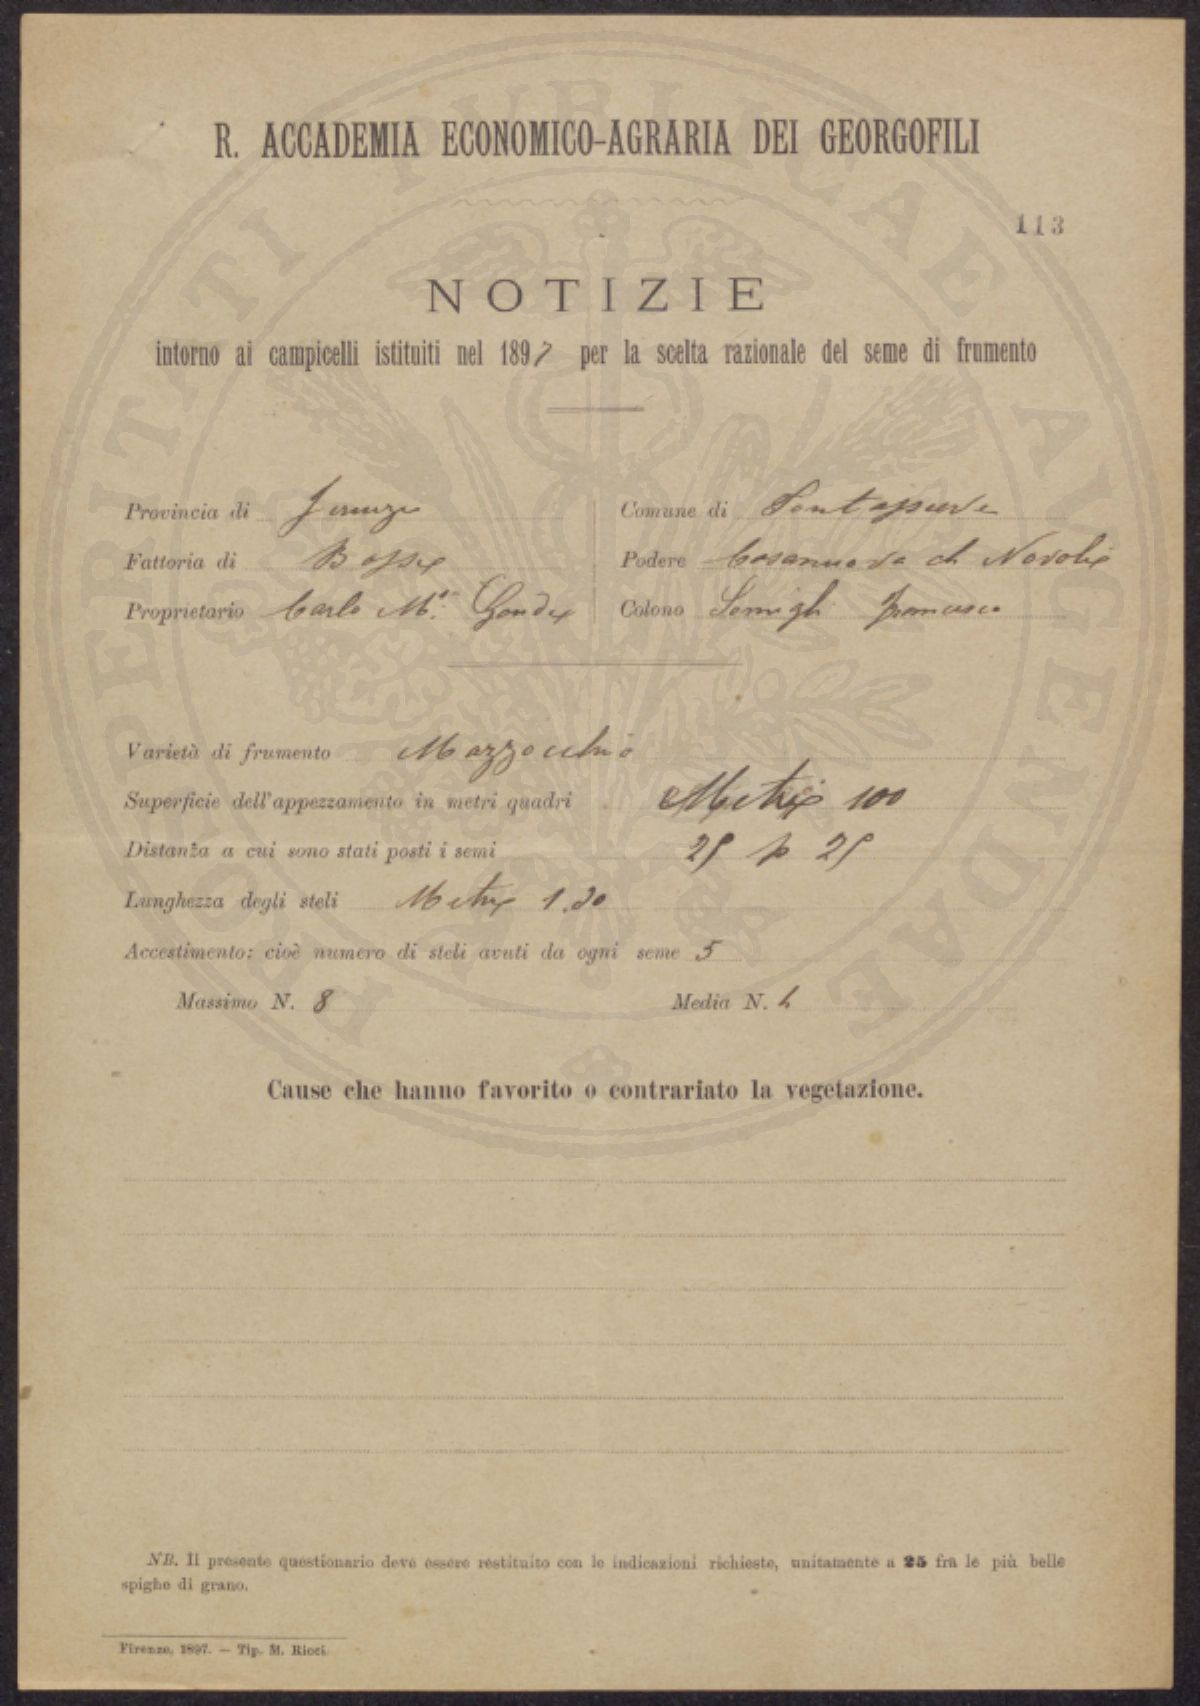 R. ACCADEMIA ECONOMICO-AGRARIA DEI GEORGOFILI
113
NOTIZIE
intorno ai campicelli istituiti nel 1897 per la scelta razionale del seme di frumento
Provincia di Firenze Comune di Pontassieve
Fattoria di Bossi Podere Casanuova di Novoli
Proprietario Carlo M. Gondi Colono Francesco
Varietà di frumento Mazzocchio
Superficie dell'appezzamento in metri quadri Metri 100
Distanza a cui sono stati posti i semi 25 p 25
Lunghezza degli steli Metri 1.30
Accestimento: cioè numero di steli avuti da ogni seme 5
Massimo N. 8 Media N.
Cause che hanno favorito o contrariato la vegetazione.
NB. Il presente questionario deve essere restituito con le indicazioni richieste, unitamente a 25 fra le più belle
spighe di grano.
Firenze, 1897. — Tip. M. Ricci.
PROSPERITATI PUBLICAE AUGENDAE